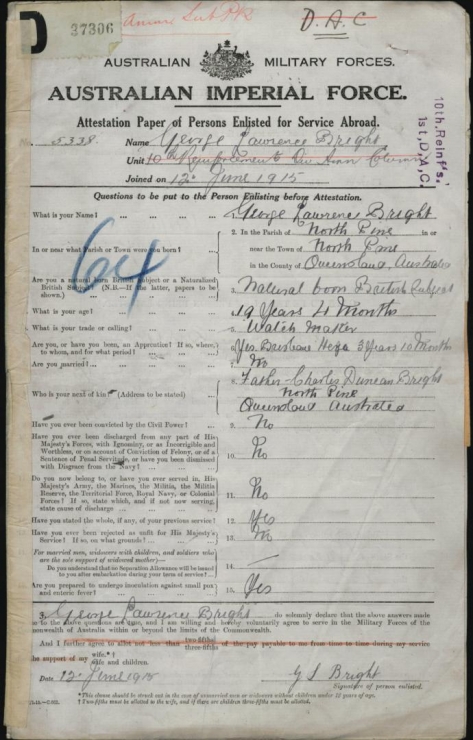 D
37306
D.A.C
AUSTRALIAN MILITARY FORCES.
AUSTRALIAN IMPERIAL FORCE.
Attestation Paper of Persons Enlisted for Service Abroad.
No. 5338. Name George Lawrence Bright
Unit 10th Reinforcements Div Amn Column
Joined on 12 June 1915
10th Reinf's.
1st. D.A.C.
Questions to be put to the Person Enlisting before Attestation.
What is your Name? ... 1. George Lawrence Bright
In or near what Parish or Town were you born? ... 2. In the Parish of North Pine in or
near the Town of North Pine
in the County of Queensland, Australia
64
Are you a natural born British Subject or a Naturalised
British Subject? (N.B.—If the latter, papers to be
shown.) ... 3. Natural born British Subject
What is your age? ... 19 Years 4 Months
What is your trade or calling? ... 5. Watch Maker
Are you, or have you been, an Apprentice? If so, where,
to whom, and for what period? ... Yes Brisbane 3 Years 10 Months
Are you married? ... 7. No
Who is your next of kin? (Address to be stated) ... 8. Father Charles Duncan Bright
North Pine
Queensland Australia
Have you ever been convicted by the Civil Power? ... 9. No
Have you ever been discharged from any part of His
Majesty's Forces, with Ignominy, or as Incorrigible and
Worthless, or on account of Conviction of Felony, or of a
Sentence of Penal Servitude, or have you been dismissed
with Disgrace from the Navy? ... 10. No
Do you now belong to, or have you ever served in, His
Majesty's Army, the Marines, the Militia, the Militia
Reserve, the Territorial Force, Royal Navy, or Colonial
Forces? If so, state which, and if not now serving,
state cause of discharge ... 11. No
Have you stated the whole, if any, of your previous service? 12. Yes
Have you ever been rejected as unfit for His Majesty's
Service? If so, on what grounds? ... 13. No
For married men, widowers with children, and soldiers who
are the sole support of widowed mother—
Do you understand that no Separation Allowance will be issued
to you after embarkation during your term of service? ... 14. —
Are you prepared to undergo inoculation against small pox
and enteric fever? ... 15. Yes
I, George Lawrence Bright do solemnly declare that the above answers made
by me to the above questions are true, and I am willing and hereby voluntarily agree to serve in the Military Forces of the
Commonwealth of Australia within or beyond the limits of the Commonwealth.
And I further agree to allot not less than two-fifths three-fifths of the pay payable to me from time to time during my service
for the support of my wife.*†
wife and children.
Date 12 June 1915 G L Bright
Signature of person enlisted.
*This clause should be struck out in the case of unmarried men or widowers without children under 18 years of age.
† Two-fifths must be allotted to the wife, and if there are children three-fifths must be allotted.